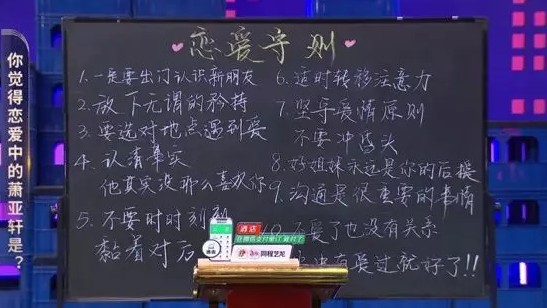 你觉得恋爱中的萧亚轩是？
恋爱守则
1. 一定要出门认识新朋友
2. 放下无谓的矜持
3. 要选对地点遇到爱
4. 认清事实
他其实没那么喜欢你
5. 不要时时刻刻
黏着对方
6. 适时转移注意力
7. 坚守爱情原则
不要冲昏头
8. 好姐妹永远是你的后援
9. 沟通是很重要的事情
爱了也没有关系
爱过就好了!!
酒店
同程艺龙